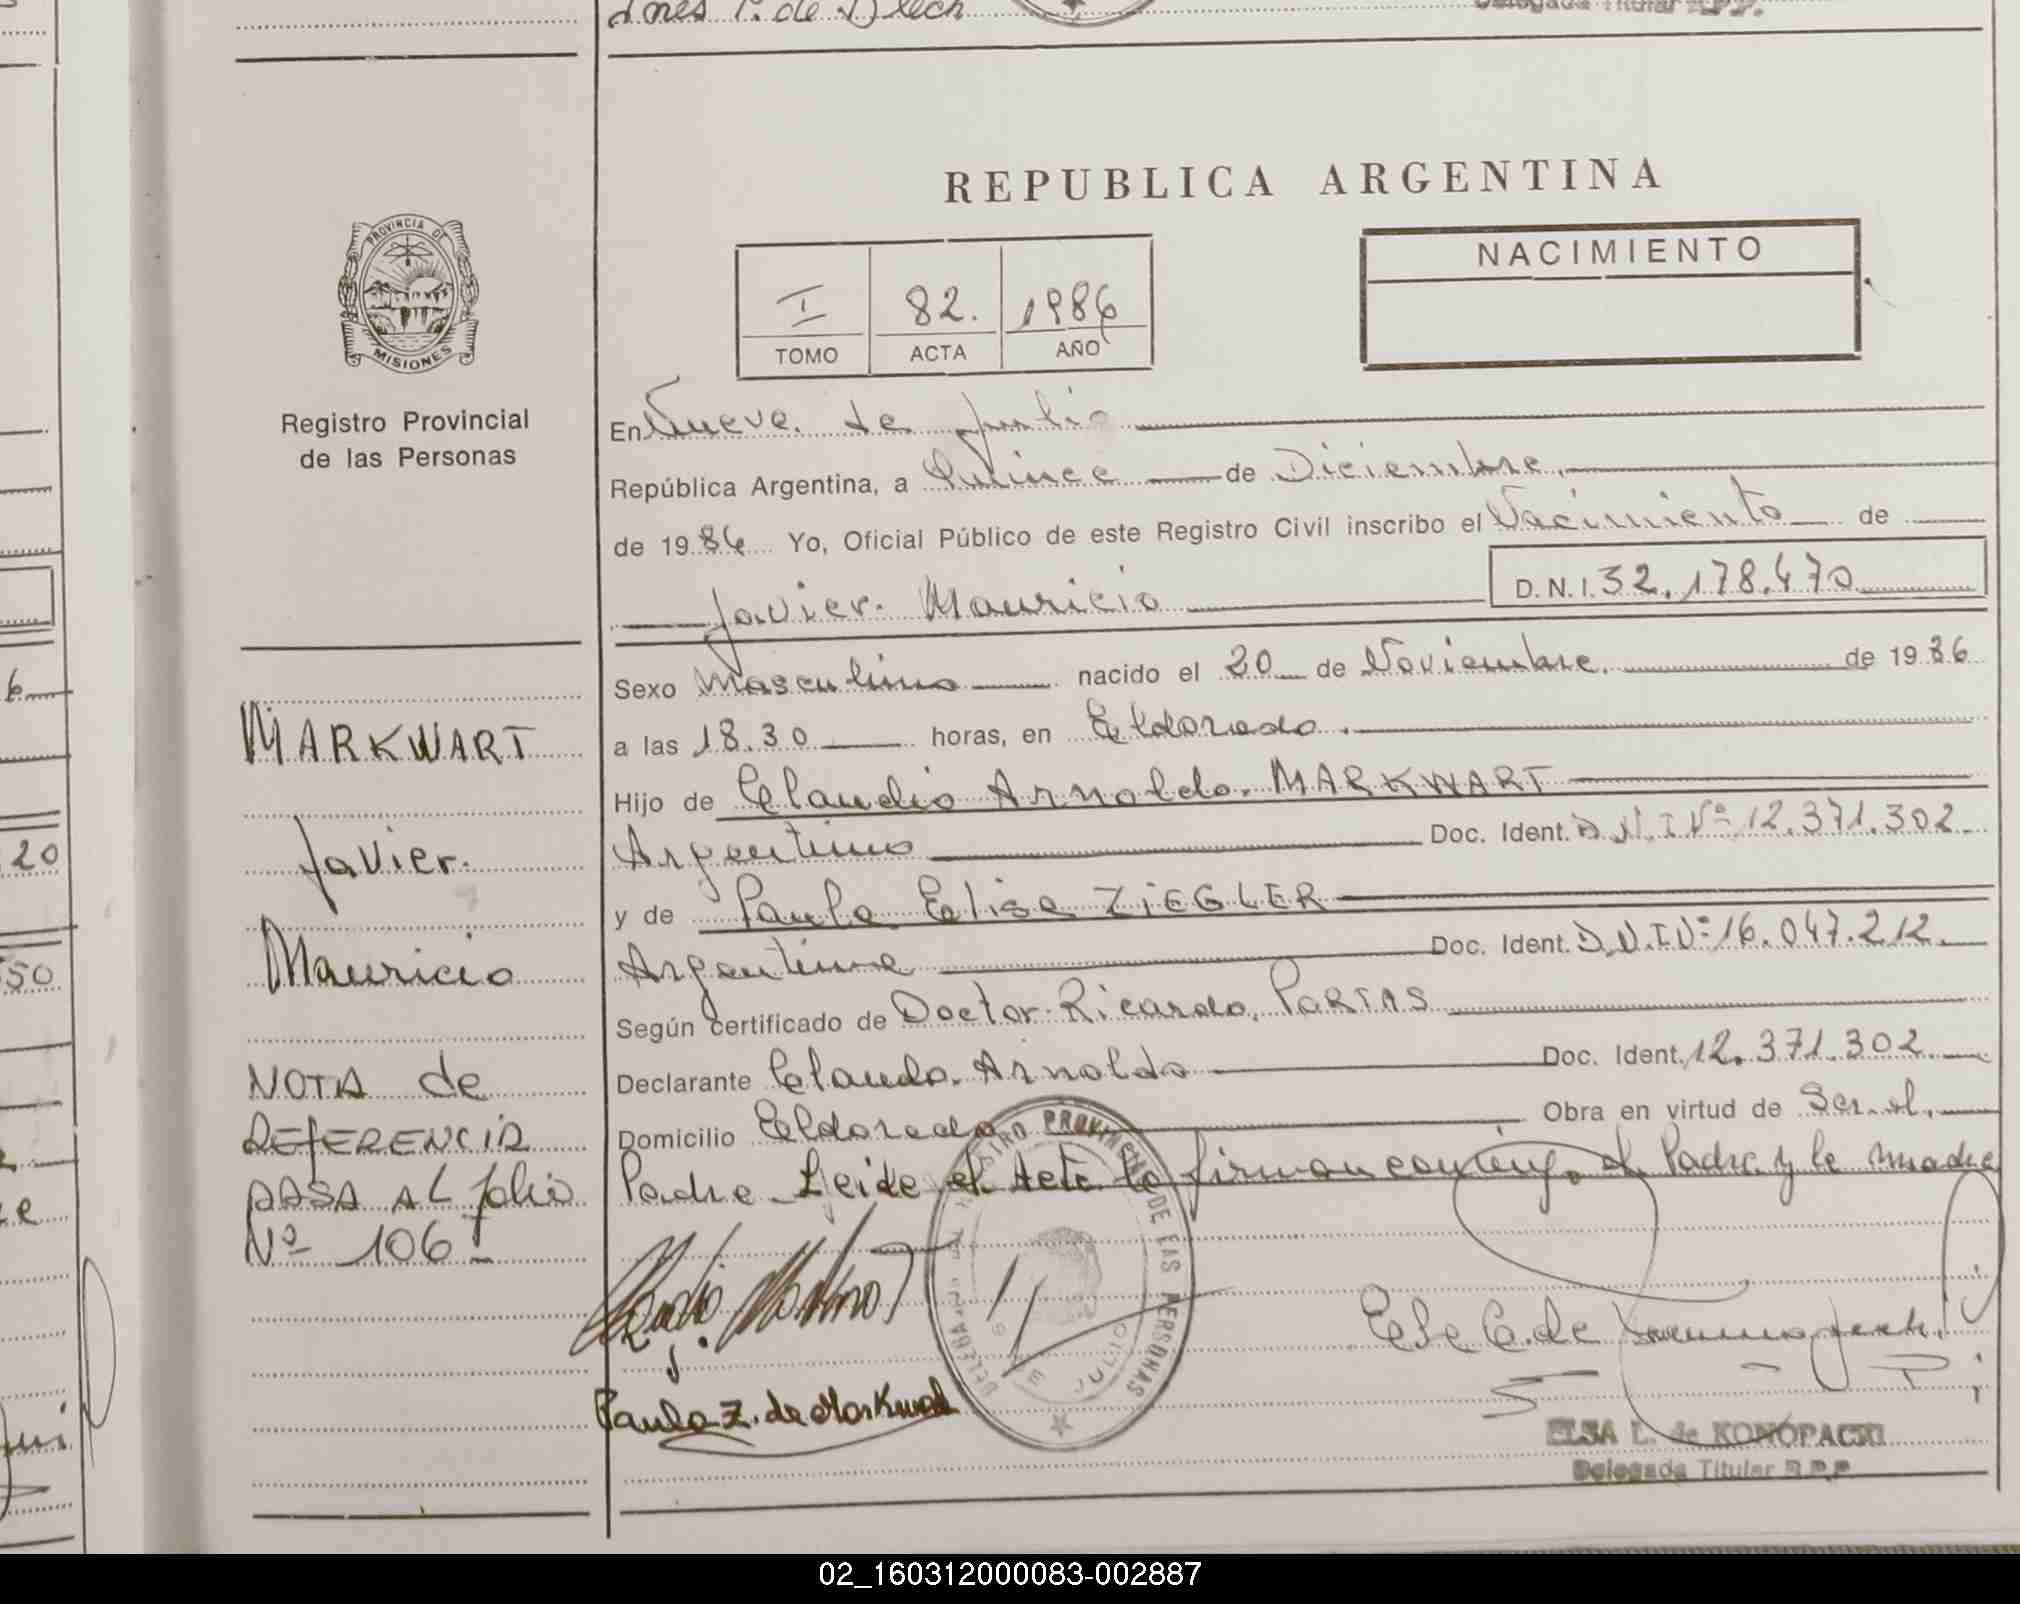 Ines P. de Dlech
Delegada Titular R.P.P.
REPUBLICA ARGENTINA
PROVINCIA DE
MISIONES
Registro Provincial
de las Personas
I 82. 1986
TOMO ACTA AÑO
NACIMIENTO
En Nueve de Julio
República Argentina, a Quince de Diciembre
de 1986 Yo, Oficial Público de este Registro Civil inscribo el Nacimiento de
Javier Mauricio D.N.I. 32.178.470
Sexo Masculino nacido el 20 de Noviembre de 1986
a las 18.30 horas, en Eldorado
Hijo de Claudio Arnoldo MARKWART
Argentino Doc. Ident. D.N.I Nº 12.371.302
y de Paula Elisa ZIEGLER
Argentina Doc. Ident. D.N.I Nº 16.047.212
Según certificado de Doctor Ricardo
Declarante Claudo Arnoldo Doc. Ident. 12.371.302
Domicilio Eldorado Obra en virtud de Ser el
Padre Leida el Acta la firman conmigo el Padre y la madre
MARKWART
Javier
Mauricio
NOTA de
REFERENCIA
PASA AL folio
Nº 106
REGISTRO PROVINCIAL DE LAS PERSONAS
9 DE JULIO
Paula Z. de Markwart
ELSA L. de KONOPACKI
Delegada Titular R.P.P.
20
50
02_160312000083-002887